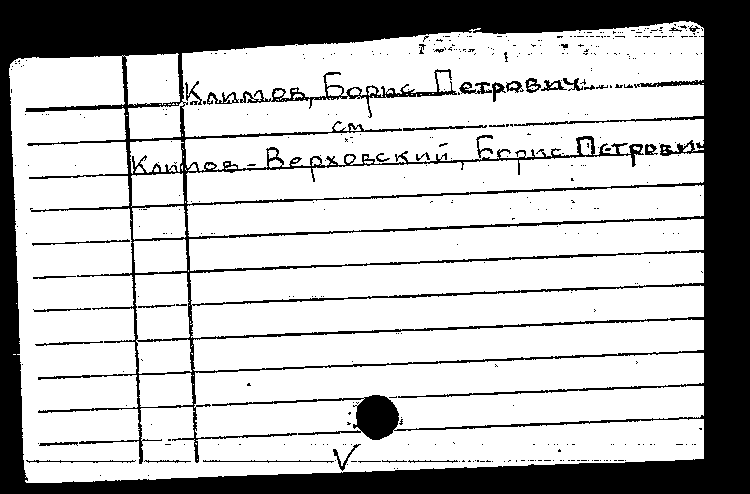 Климов, Борис Петрович.
см.
Климов-Верховский, Борис Петрович